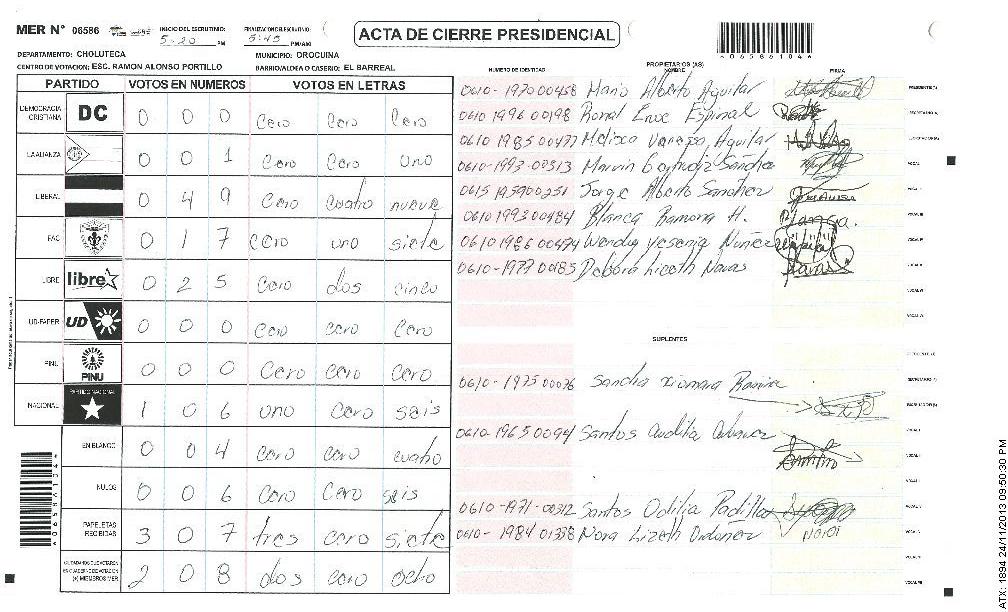 MER N° 06586 INICIO DEL ESCRUTINIO: 5:20 PM FINALIZACION DEL ESCRUTINIO: 5:45 PM/AM
ACTA DE CIERRE PRESIDENCIAL
*0658610​4*
DEPARTAMENTO: CHOLUTECA MUNICIPIO: OROCUINA
CENTRO DE VOTACION: ESC. RAMON ALONSO PORTILLO BARRIO/ALDEA O CASERIO: EL BARREAL
PARTIDO VOTOS EN NUMEROS VOTOS EN LETRAS
DEMOCRACIA CRISTIANA DC 0 0 0 Cero Cero Cero
LA ALIANZA 0 0 1 Cero Cero uno
LIBERAL 0 4 9 Cero cuatro nueve
PAC 0 1 7 cero uno siete
LIBRE libre 0 2 5 Cero dos cinco
UD-FAPER UD 0 0 0 Cero cero Cero
PINU PINU 0 0 0 Cero Cero Cero
NACIONAL PARTIDO NACIONAL 1 0 6 uno Cero seis
EN BLANCO 0 0 4 Cero cero cuatro
NULOS 0 0 6 Cero Cero seis
PAPELETAS RECIBIDAS 3 0 7 tres cero siete
CIUDADANOS QUE VOTARON EN CUADERNO DE VOTACION (+) MIEMBROS MER 2 0 8 dos cero ocho
NUMERO DE IDENTIDAD PROPIETARIOS (AS) NOMBRE FIRMA
0610-1970 00458 Mario Alberto Aguilar
0610 1996 00198 Ronal Espinal
0610 1985 00477 Melissa Vanessa Aguilar
0610-1993-00313 Marvin Sanchez
0615 1959 00251 Jorge Alberto Sanchez
0610 1993 00484 Blanca Ramona H. Blanca.
0610 1986 00474 Wendy Yesenia Nuñez
0610-1977 00185 Debora Lizeth Navas Navas
SUPLENTES
0610-1975 00076 Sandra Xiomara Ramirez
0610-1965 0094 Santos
0610-1971-00312 Santos Odilia Padilla
0610-1984 01358 Nora Lizeth Ordoñez
ATX: 1894 24/11/2013 09:50:30 PM